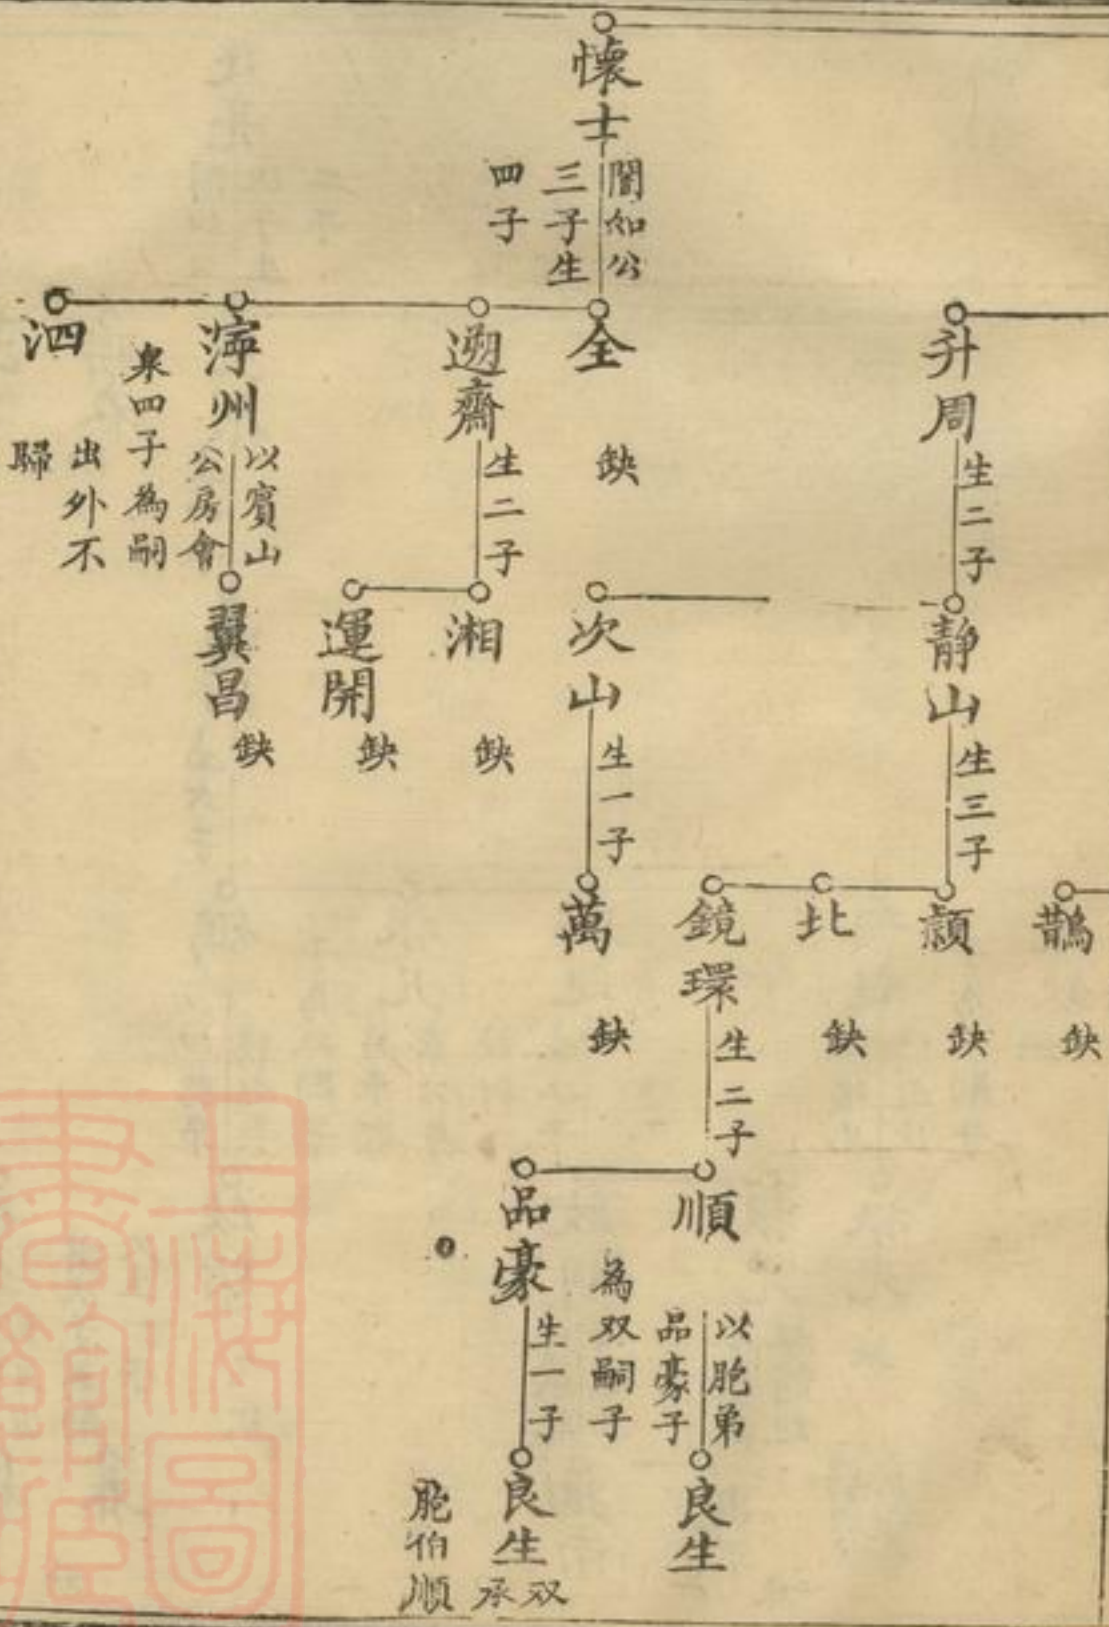 懷士
誾如公
三子生
四子
升周
生二子
全
缺
遡齋
生二子
濘州
以賓山
公房會
泉四子為嗣
泗
出外不
歸
靜山
生三子
次山
生一子
湘
缺
運開
缺
翼昌
缺
鵲
缺
顙
缺
北
缺
鏡環
生二子
萬
缺
順
以胞弟
品豪子
為双嗣子
品豪
生一子
良生
良生
双承
胞伯順
上海圖
書館藏